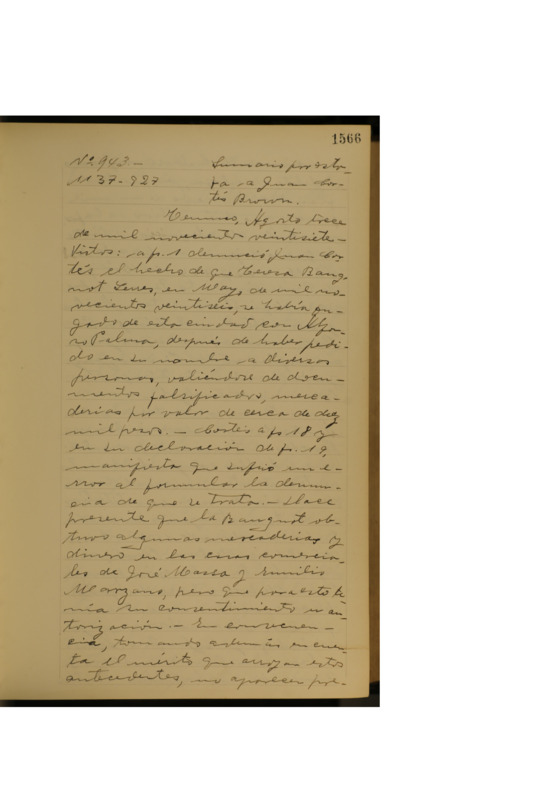 1566
N2943.- Sumario por esta-
1137-927 fa a Juan Cor-
tés Brown.
Temuco, Agosto trece
de mil novecientos veintisiete.-
Vistos: a fs. 1 denunció Juan Cor-
tés el hecho de que Teresa Baug-
not, en Mayo de mil no-
vecientos veintiséis, se había fu-
gado de esta ciudad con
Palma, después de haber pedi-
do en su nombre a diversas
personas, valiéndose de docu-
mentos falsificados, merca-
derías por valor de cerca de diez
mil pesos.- Cortés a fs 18 y
en su declaración de fs. 19,
manifiesta que sufrió un e-
rror al formular la denun-
cia de que se trata.- Hace
presente que la Baugnot ob-
tuvo algunas mercaderías y
dinero en las casas comercia-
les de José Massa y Emilio
pero que para esto te-
nía su consentimiento o au-
torización.- En consecuen-
cia, tomando además en cuen-
ta el mérito que arrojan estos
antecedentes, no aparecen pre-